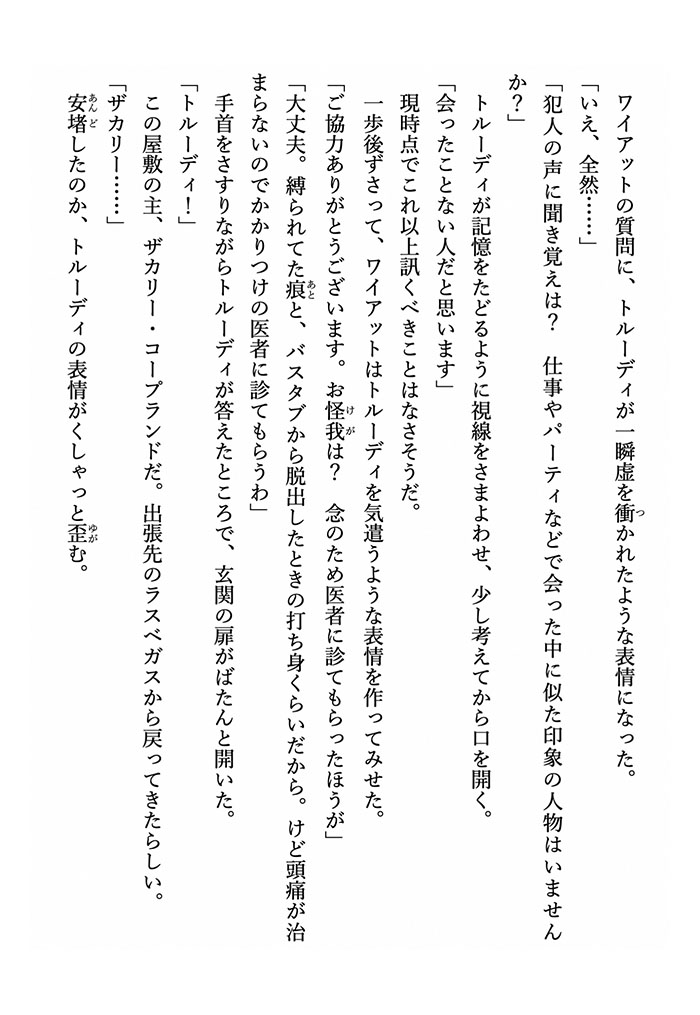 ワイアットの質問に、トルーディが一瞬虚を衝かれたような表情になった。
「いえ、全然……」
「犯人の声に聞き覚えは？　仕事やパーティなどで会った中に似た印象の人物はいません
か？」
トルーディが記憶をたどるように視線をさまよわせ、少し考えてから口を開く。
「会ったことない人だと思います」
現時点でこれ以上訊くべきことはなさそうだ。
一歩後ずさって、ワイアットはトルーディを気遣うような表情を作ってみせた。
「ご協力ありがとうございます。お怪我は？　念のため医者に診てもらったほうが」
「大丈夫。縛られてた痕と、バスタブから脱出したときの打ち身くらいだから。けど頭痛が治
まらないのでかかりつけの医者に診てもらうわ」
手首をさすりながらトルーディが答えたところで、玄関の扉がばたんと開いた。
「トルーディ！」
この屋敷の主、ザカリー・コープランドだ。出張先のラスベガスから戻ってきたらしい。
「ザカリー……」
安堵したのか、トルーディの表情がくしゃっと歪む。